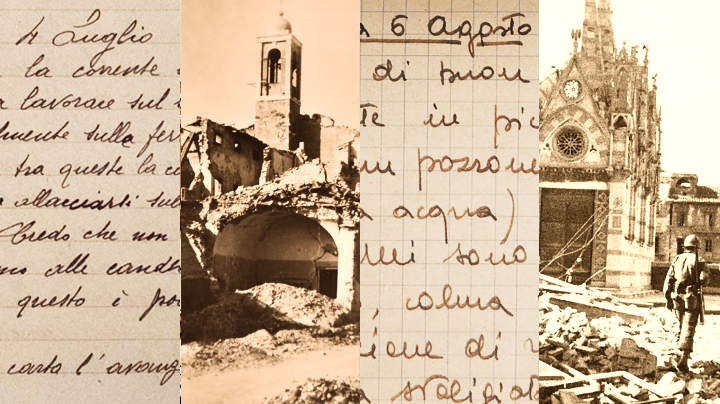 4 Luglio
la corrente
lavorare sul
lmente sulla fer
tra queste la co
allacciarsi sul
Credo che non
no alle cande
questo è po
carta l'avang
6 Agosto
di buon
te in pic
un pozzone
acqua)
mi sono
, colma
zione di
svaligiat